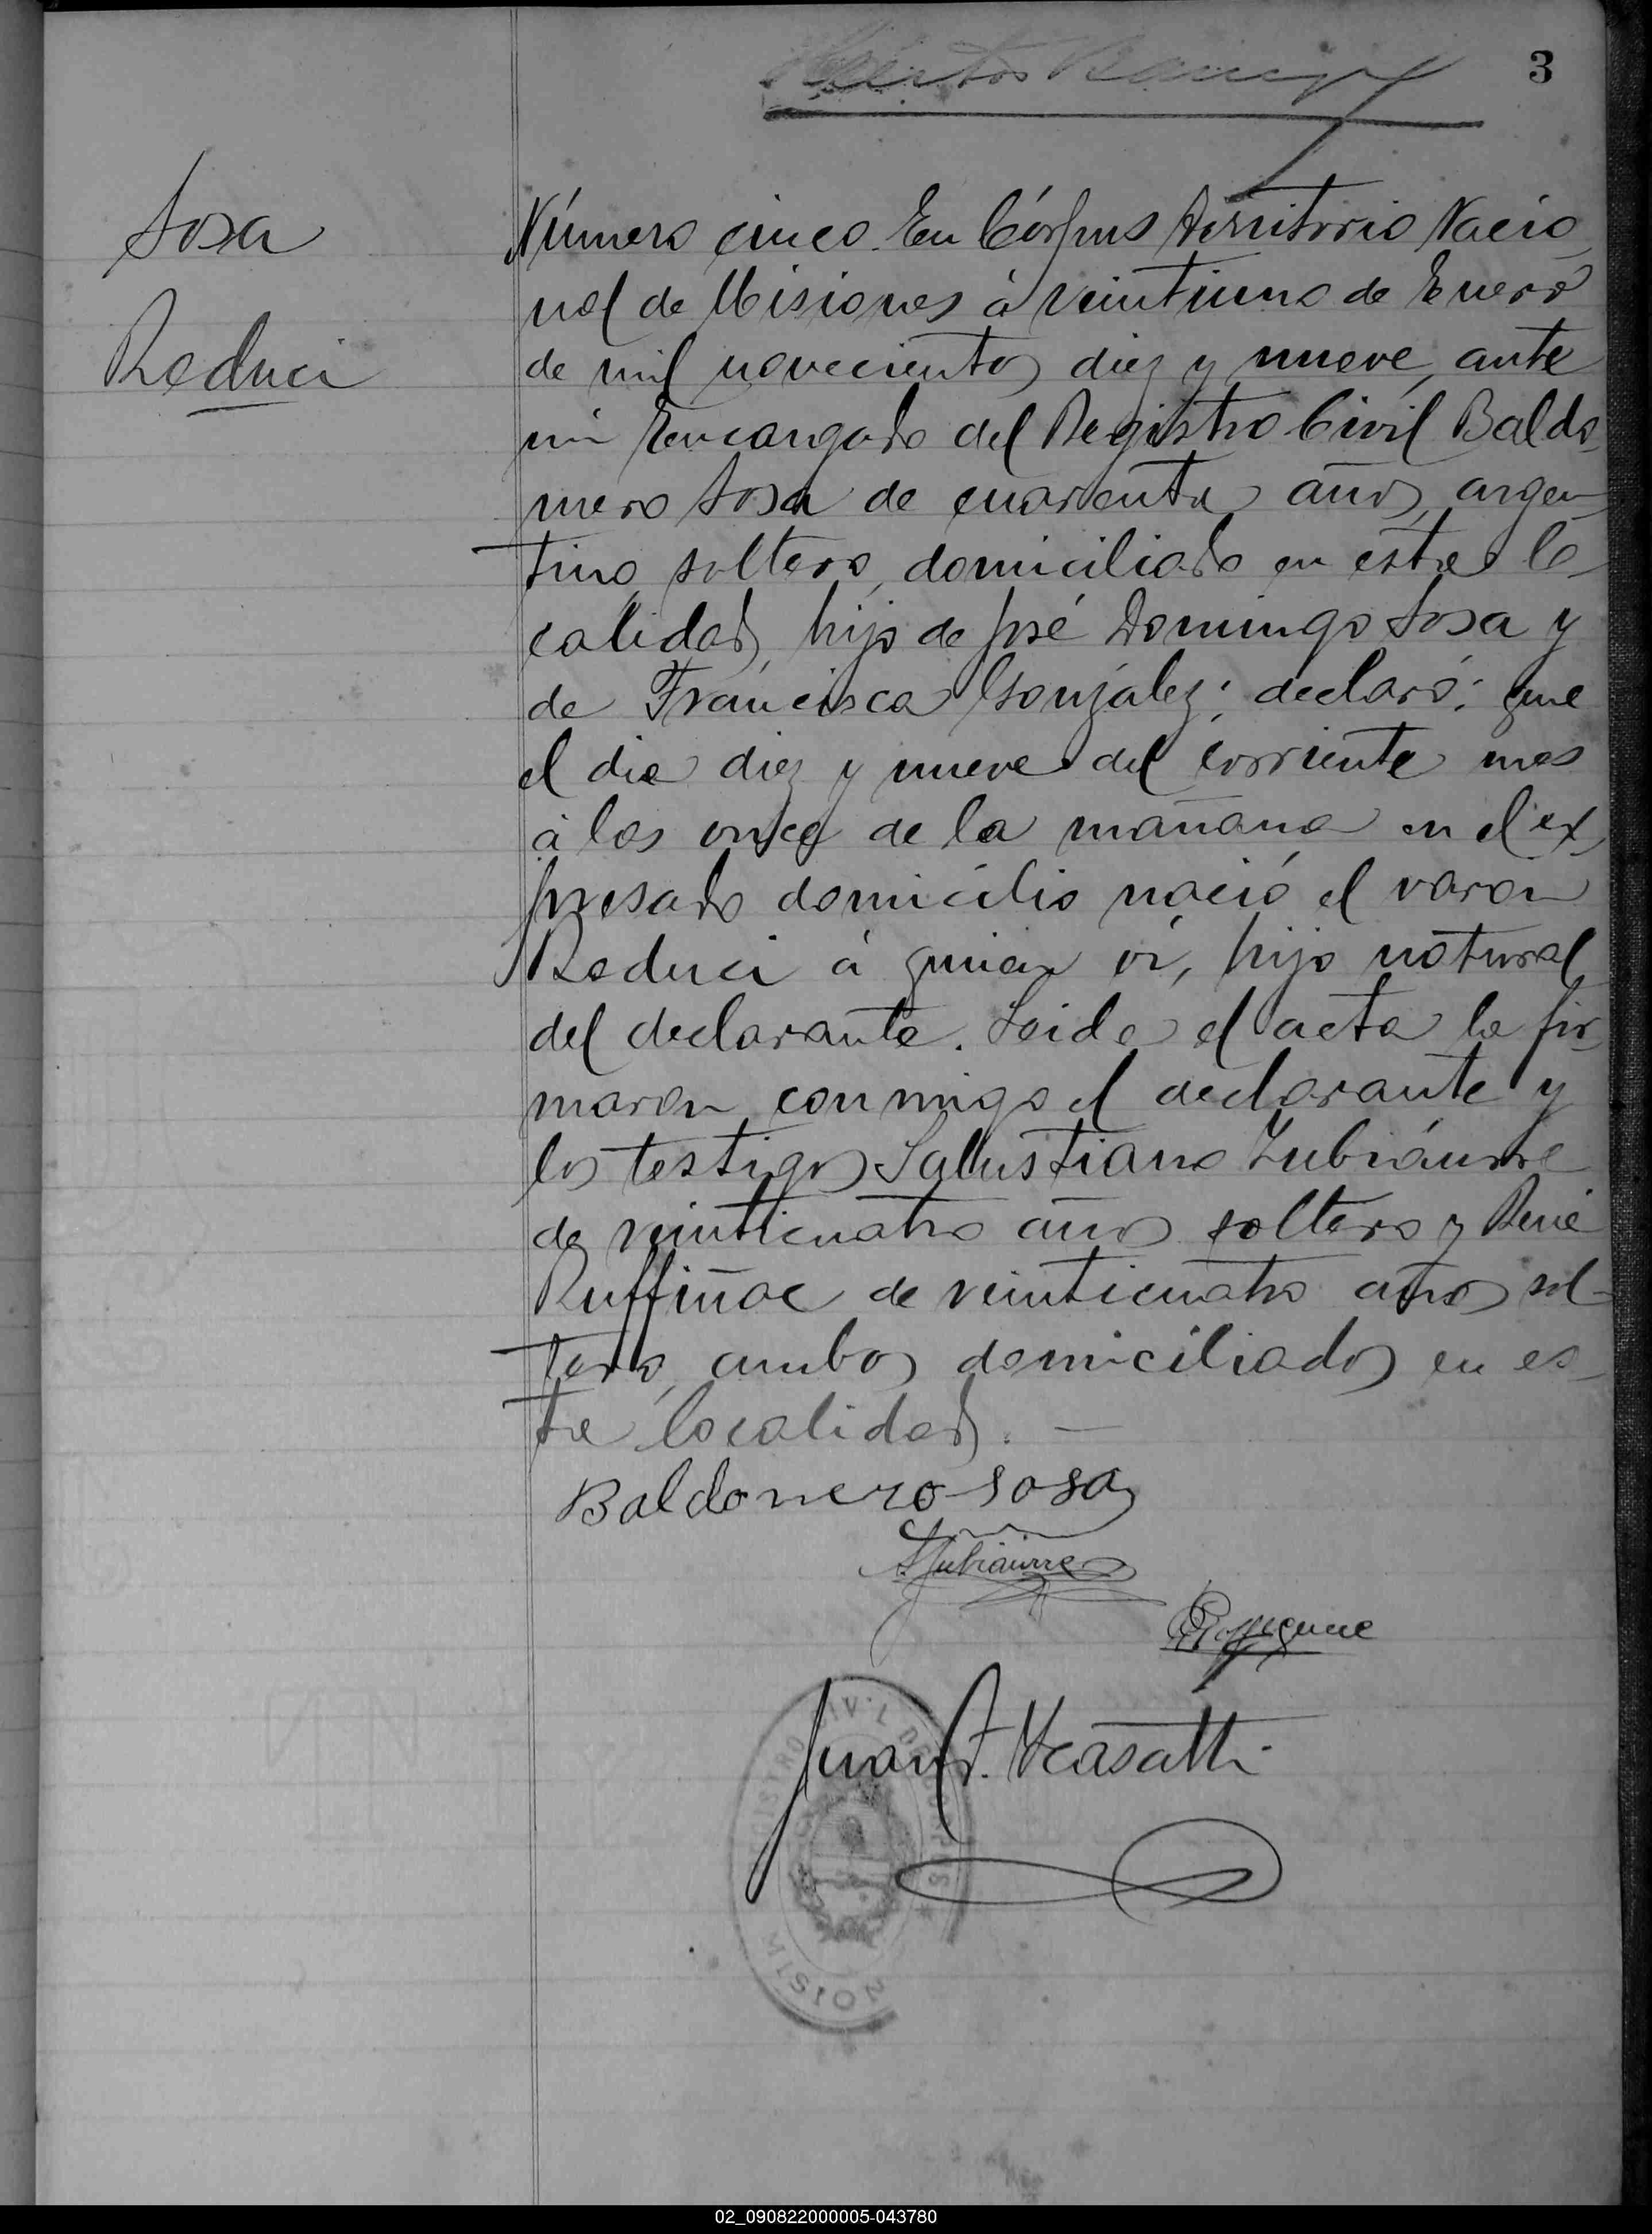 3
Sosa
Reduci
Número cinco. En Córpus Territorio Nacio
nal de Misiones á veintiuno de Enero
de mil novecientos diez y nueve, ante
mi Encargado del Registro Civil Baldo
mero Sosa de cuarenta años, argen-
tino, soltero, domiciliado en esta lo-
calidad, hijo de José Domingo Sosa y
de Francisca González; declaró: que
el dia diez y nueve del corriente mes
á las once de la mañana en el ex-
presado domicilio nació el varon
Reduci á quien ví, hijo natural
del declarante. Leida el acta la fir-
maron conmigo el declarante y
los testigos Salustiano Zubiáurre
de veinticuatro años soltero y René
Ruffiñac de veinticuatro años sol-
tero, ambos domiciliados en es-
ta localidad. —
Baldomero Sosa
S Zubiaurre
Juan F.
MISION
02_090822000005-043780